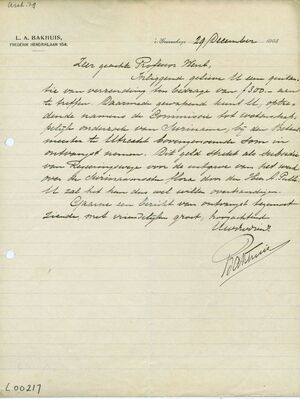 arch. 19
L. A. BAKHUIS,
FREDERIK HENDRIKLAAN 104.
's-Gravenhage 29 December 1903
Zeer geachte Professor Went,
Inliggend gelieve U een quitan-
tie van verzending ten bedrage van ƒ 300.- aan
te treffen. Daarmede gewapend kunt U, optre-
dende namens de Commissie tot wetenschap-
pelijk onderzoek van Suriname, bij den
meester te Utrecht bovengenoemde som in
ontvangst nemen. Dit geld strekt als
van Regeeringswege voor de uitgave van het werk
over de Surinaamsche flora door den Heer A. Pulle
U zal het hem dus wel willen overhandigen.
Gaarne een bericht van ontvangst tegemoet
ziende, met vriendelijken groet, hoogachtend
Uw
Bakhuis
L00217